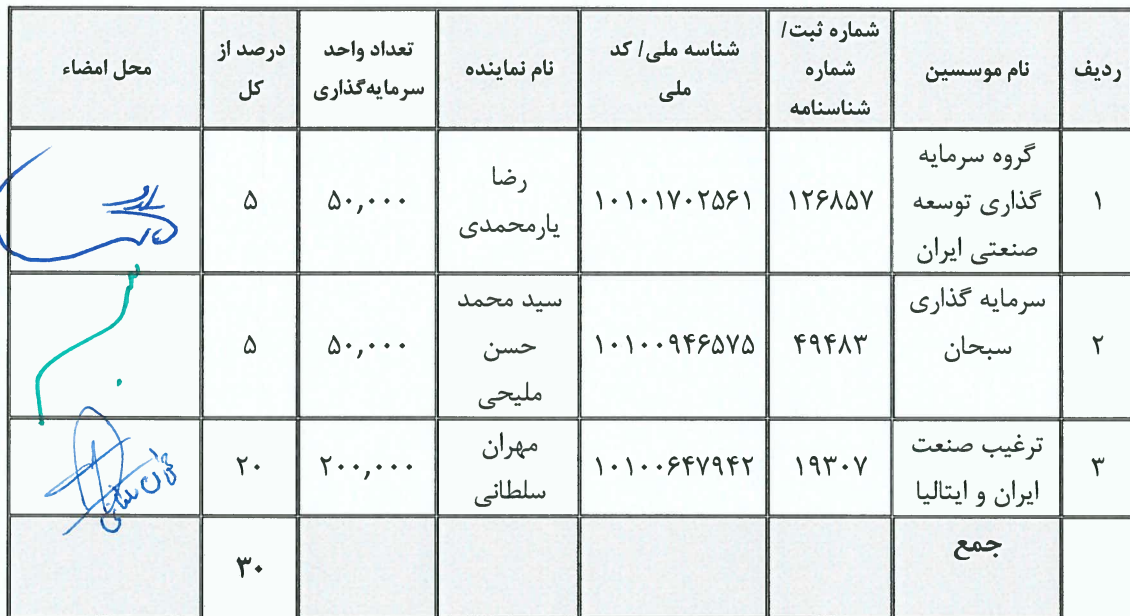 ردیف
نام موسسین
شماره ثبت/
شماره
شناسنامه
شناسه ملی/ کد
ملی
نام نماینده
تعداد واحد
سرمایه‌گذاری
درصد از
کل
محل امضاء
۱
گروه سرمایه
گذاری توسعه
صنعتی ایران
۱۲۶۸۵۷
۱۰۱۰۱۷۰۲۵۶۱
رضا
یارمحمدی
۵۰,۰۰۰
۵
۲
سرمایه گذاری
سبحان
۴۹۴۸۳
۱۰۱۰۰۹۴۶۵۷۵
سید محمد
حسن
ملیحی
۵۰,۰۰۰
۵
۳
ترغیب صنعت
ایران و ایتالیا
۱۹۳۰۷
۱۰۱۰۰۶۴۷۹۴۲
مهران
سلطانی
۲۰۰,۰۰۰
۲۰
جمع
۳۰